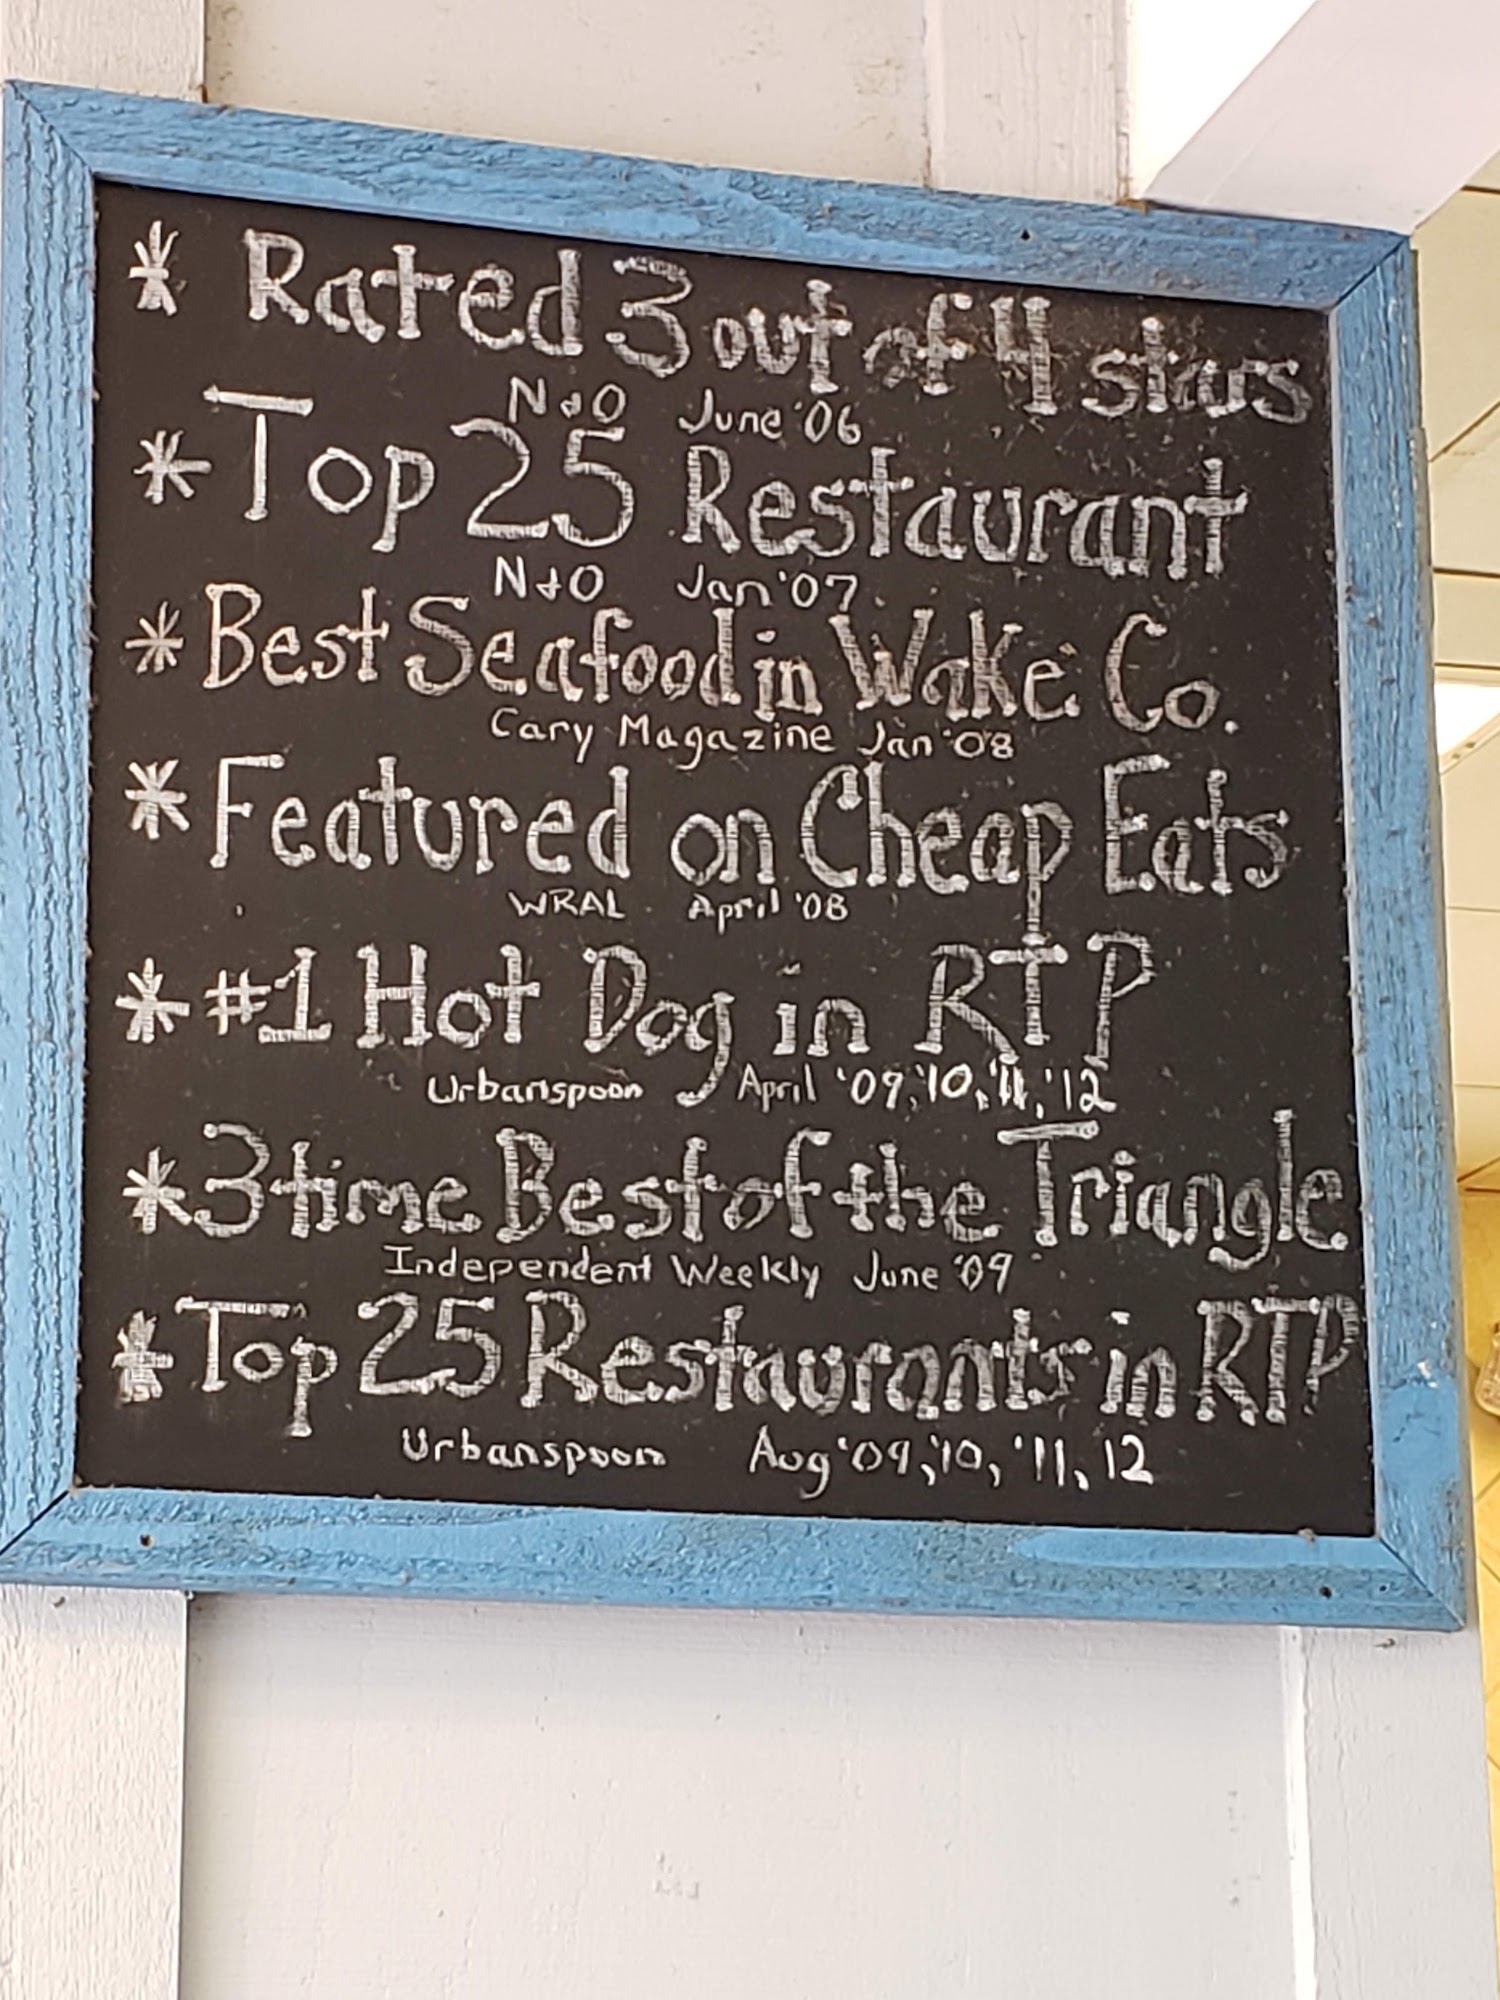 * Rated 3 out of 4 stars
N&O June '06
* Top 25 Restaurant
N&O Jan '07
* Best Seafood in Wake Co.
Cary Magazine Jan '08
* Featured on Cheap Eats
WRAL April '08
* #1 Hot Dog in RTP
Urbanspoon April '09, '10, '11, '12
* 3 time Best of the Triangle
Independent Weekly June '09
* Top 25 Restaurants in RTP
Urbanspoon Aug '09, '10, '11, 12